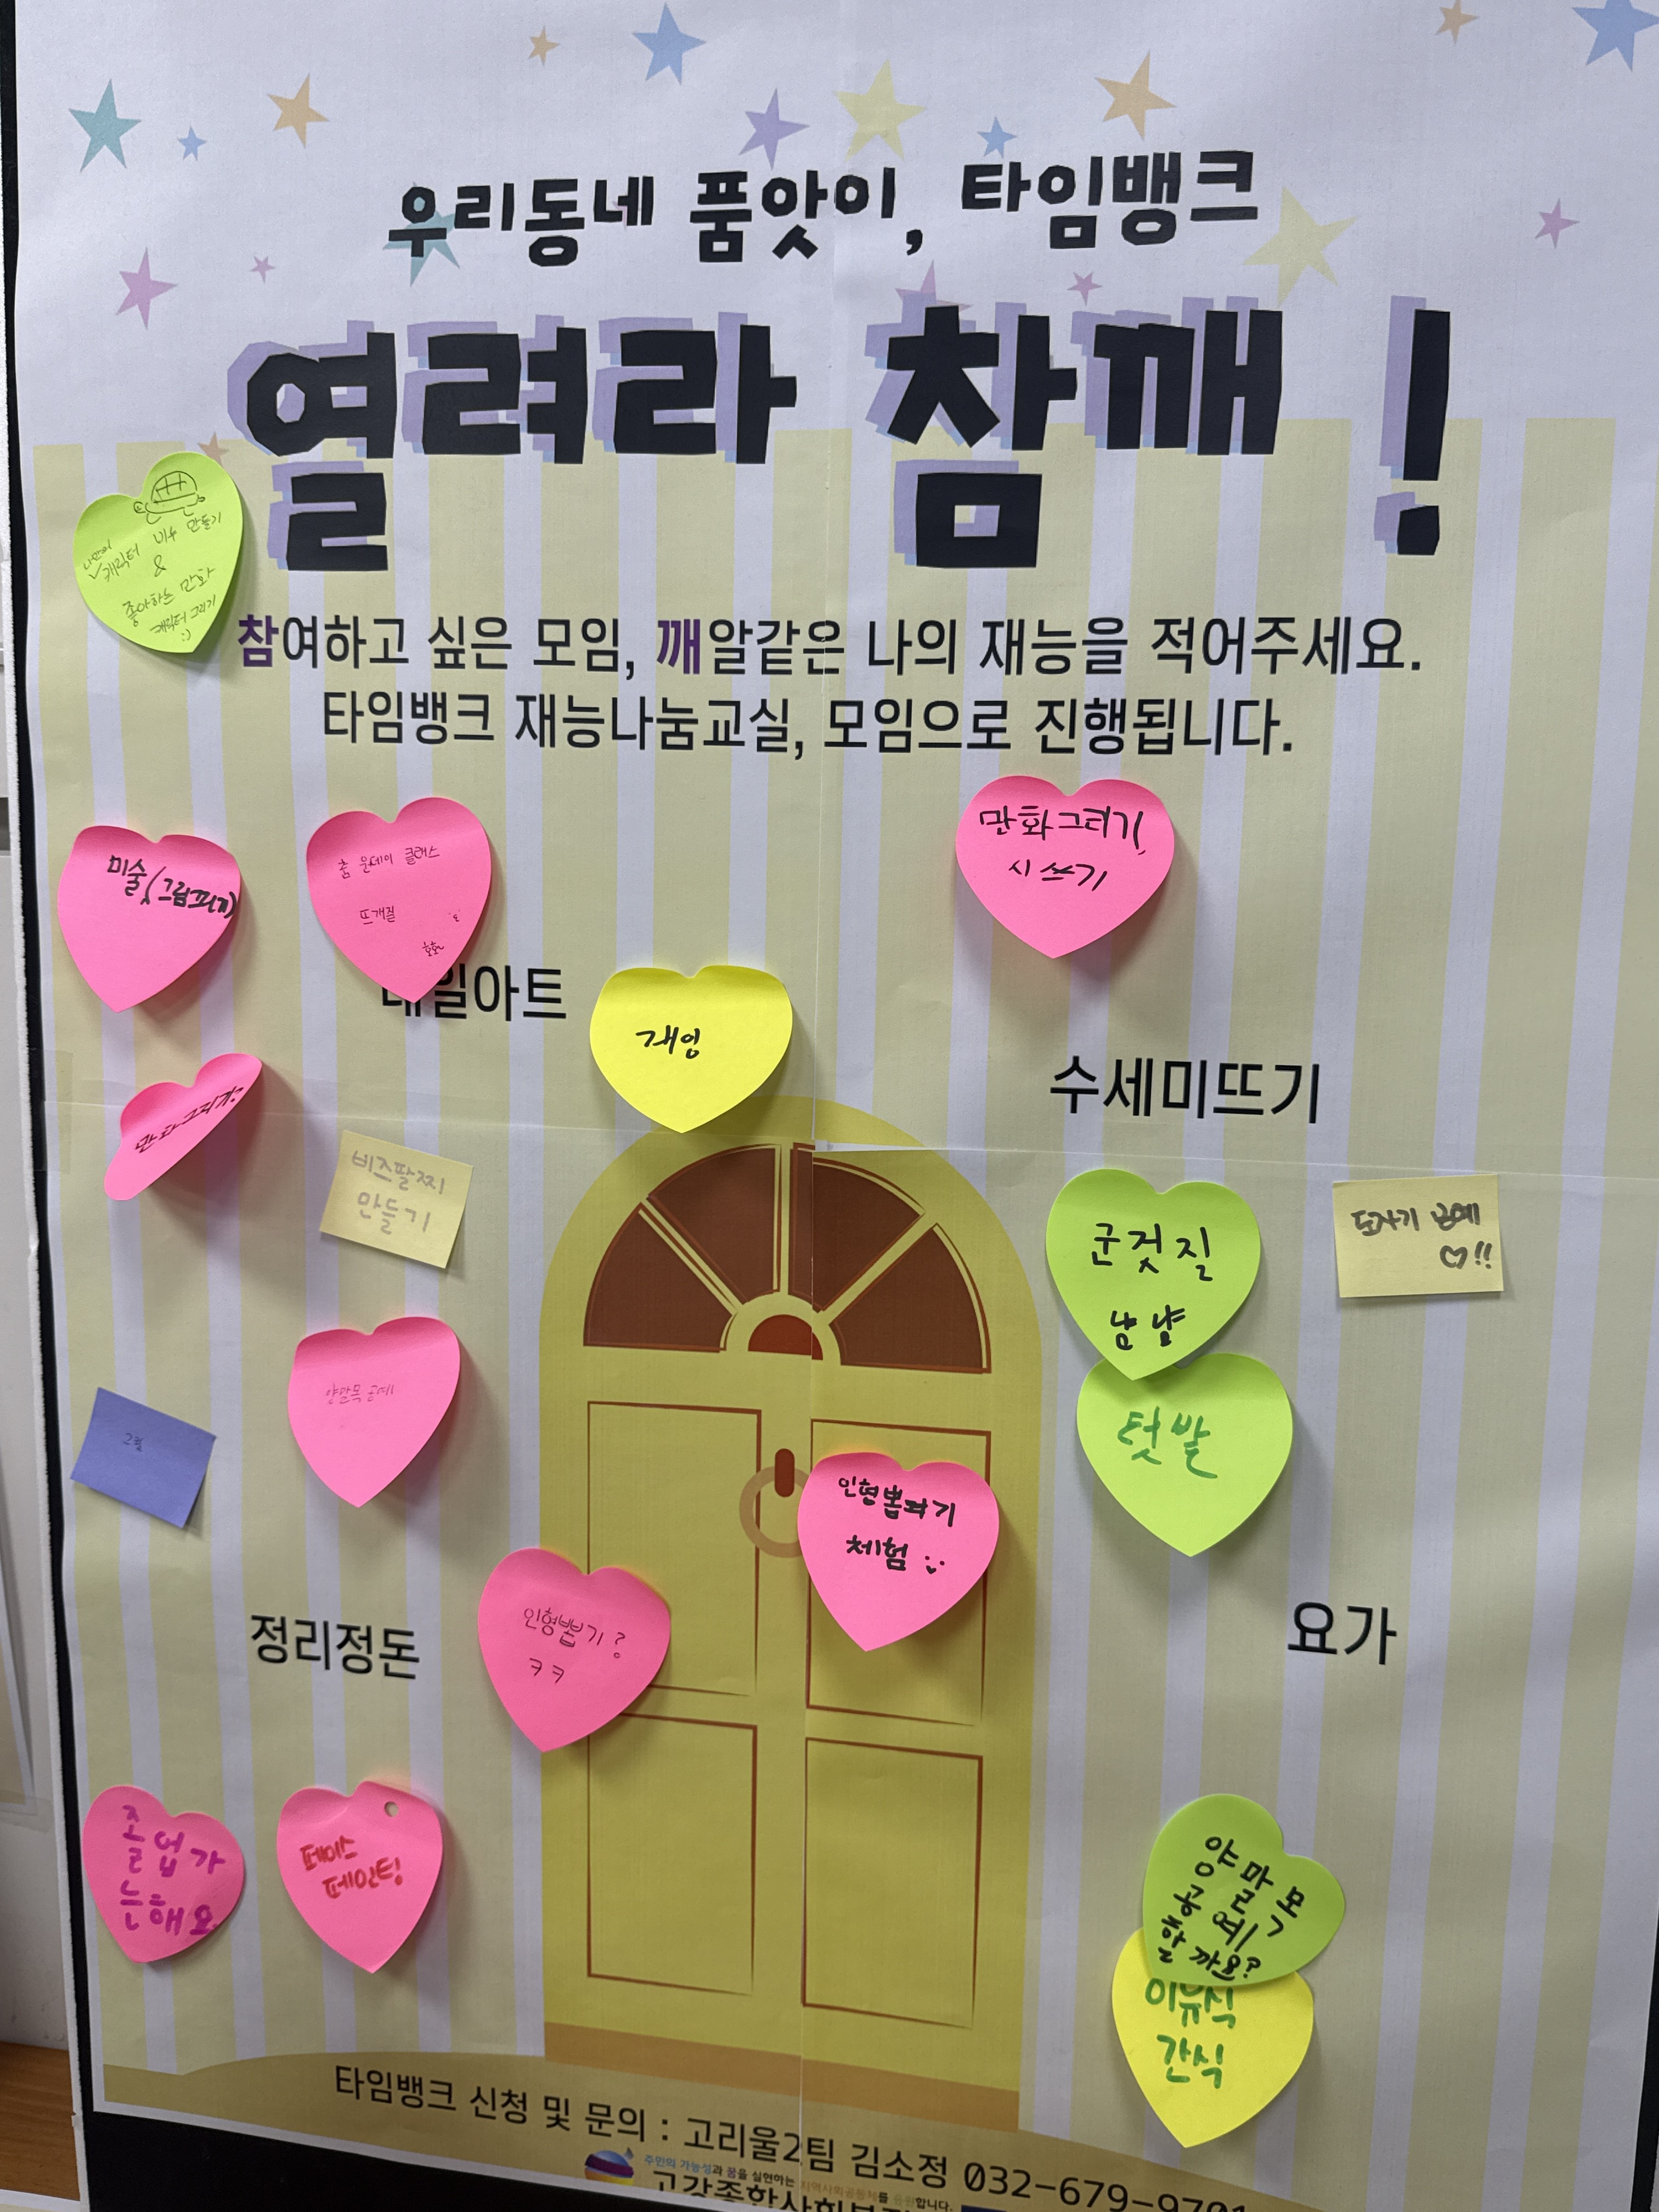 우리동네 품앗이, 타임뱅크
열려라 참깨!
나만의
캐릭터 비누 만들기
&
좋아하는 만화
캐릭터 그리기
:)
참여하고 싶은 모임, 깨알같은 나의 재능을 적어주세요.
타임뱅크 재능나눔교실, 모임으로 진행됩니다.
미술(그림그리기)
홈 원데이 클래스
뜨개질
만화그리기,
시 쓰기
네일아트
재잉
수세미뜨기
만화그리기?
비즈팔찌
만들기
군것질
냠냠
도자기 공예
♡!!
양말목 공예
텃밭
인형뽑기
체험
인형뽑기?
ㅋㅋ
정리정돈
요가
졸업가
능해요
페이스
페인팅
양말목
공예
할까요?
이유식
간식
타임뱅크 신청 및 문의 : 고리울2팀 김소정 032-679-9701
주민의 가능성과 꿈을 실현하는 지역사회공동체를 응원합니다.
고강종합사회복지